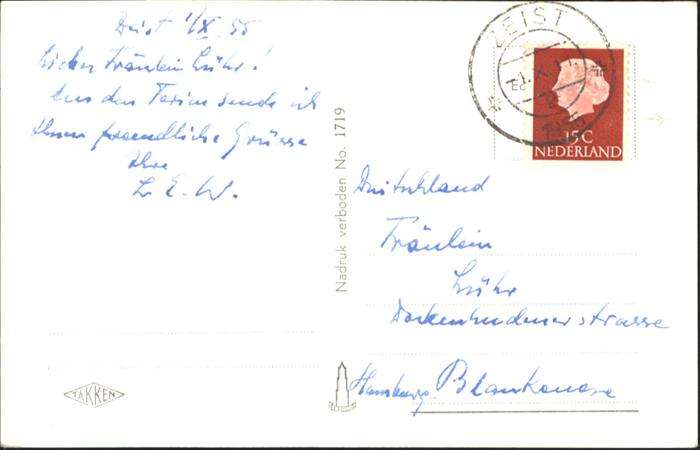 Zeist 1/X. 55
Liebes Fräulein Lühr!
Aus den Ferien sende ich
Ihnen freundliche Grüsse
Ihre
L. E. W.
Nadruk verboden No. 1719
TAKKEN
ZEIST
15C
NEDERLAND
Deutschland
Fräulein
Lühr
Dockenhudenerstrasse
Hamburg Blankenese